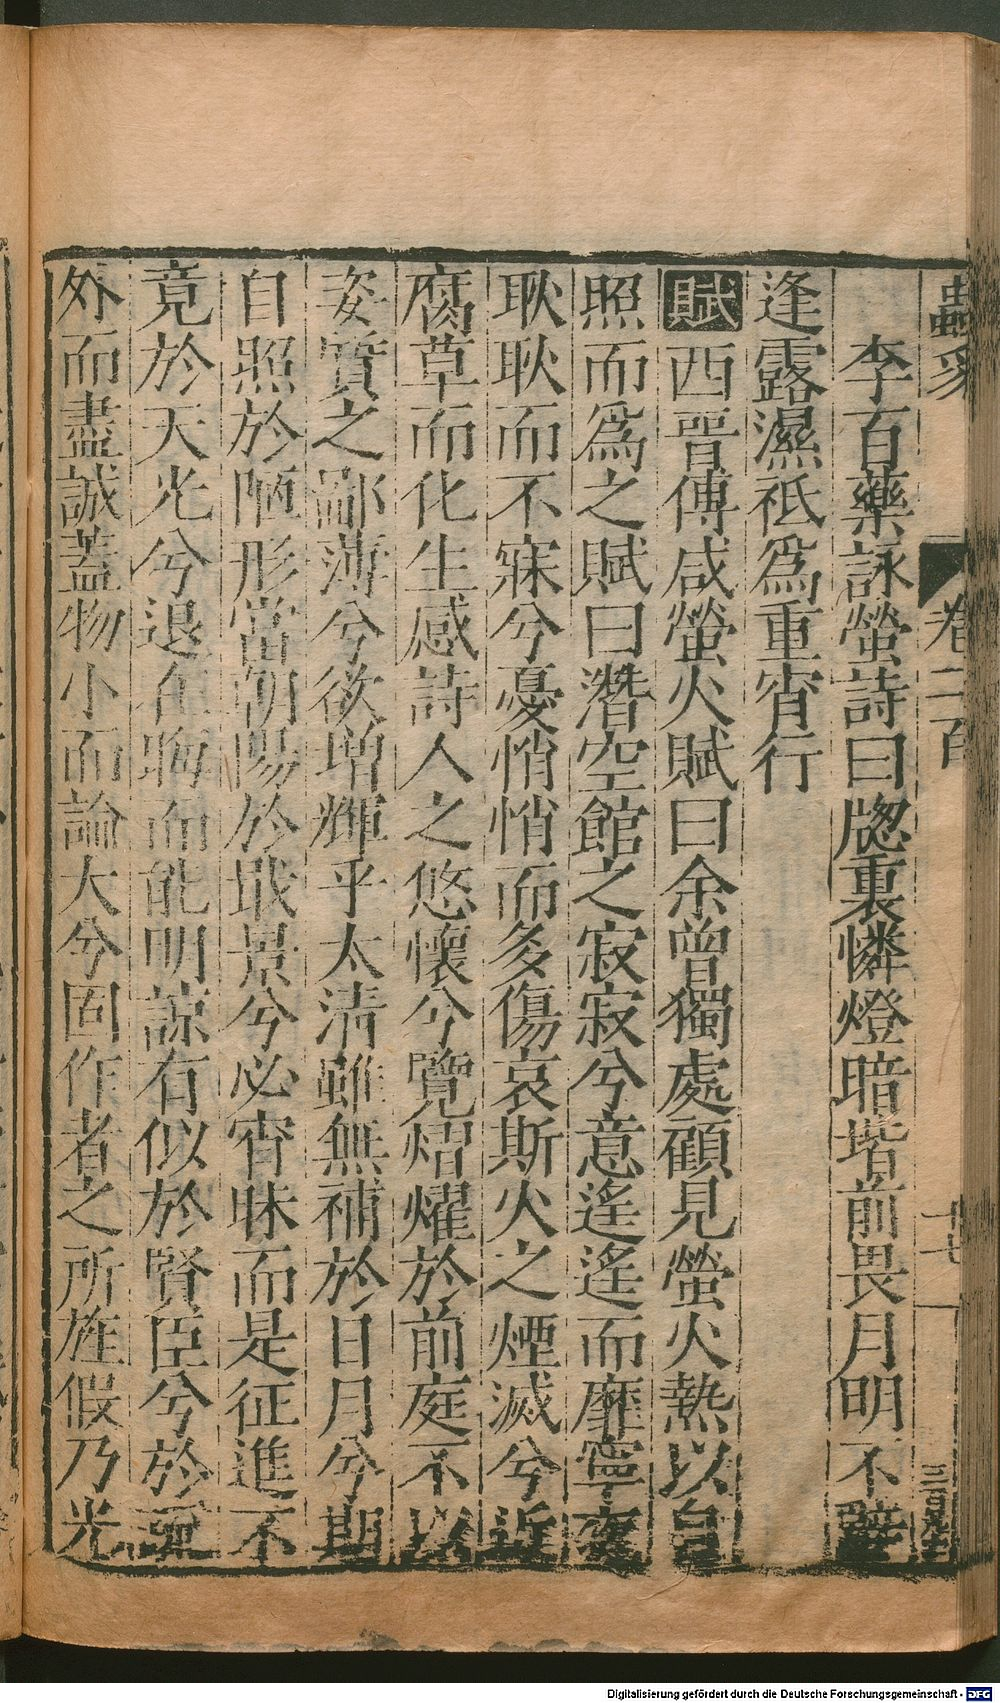 蟲豸 卷二百 十七
李百藥詠螢詩曰牕裏憐燈暗堦前畏月明不辭
逢露濕祇爲重宵行
賦西晉傅咸螢火賦曰余曾獨處顧見螢火熱以自
照而爲之賦曰潛空館之寂寂兮意遙遙而靡寧夜
耿耿而不寐兮憂悄悄而多傷哀斯火之煙滅兮近
腐草而化生感詩人之悠懷兮覽熠燿於前庭不以
姿質之鄙薄兮欲增輝乎太清雖無補於日月兮期
自照於陋形當朝陽於戢景兮必宵昧而是征進不
竟於天光兮退在晦而能明諒有似於賢臣兮於疏
外而盡誠蓋物小而論大兮固作者之所旌假乃光
Digitalisierung gefördert durch die Deutsche Forschungsgemeinschaft - DFG